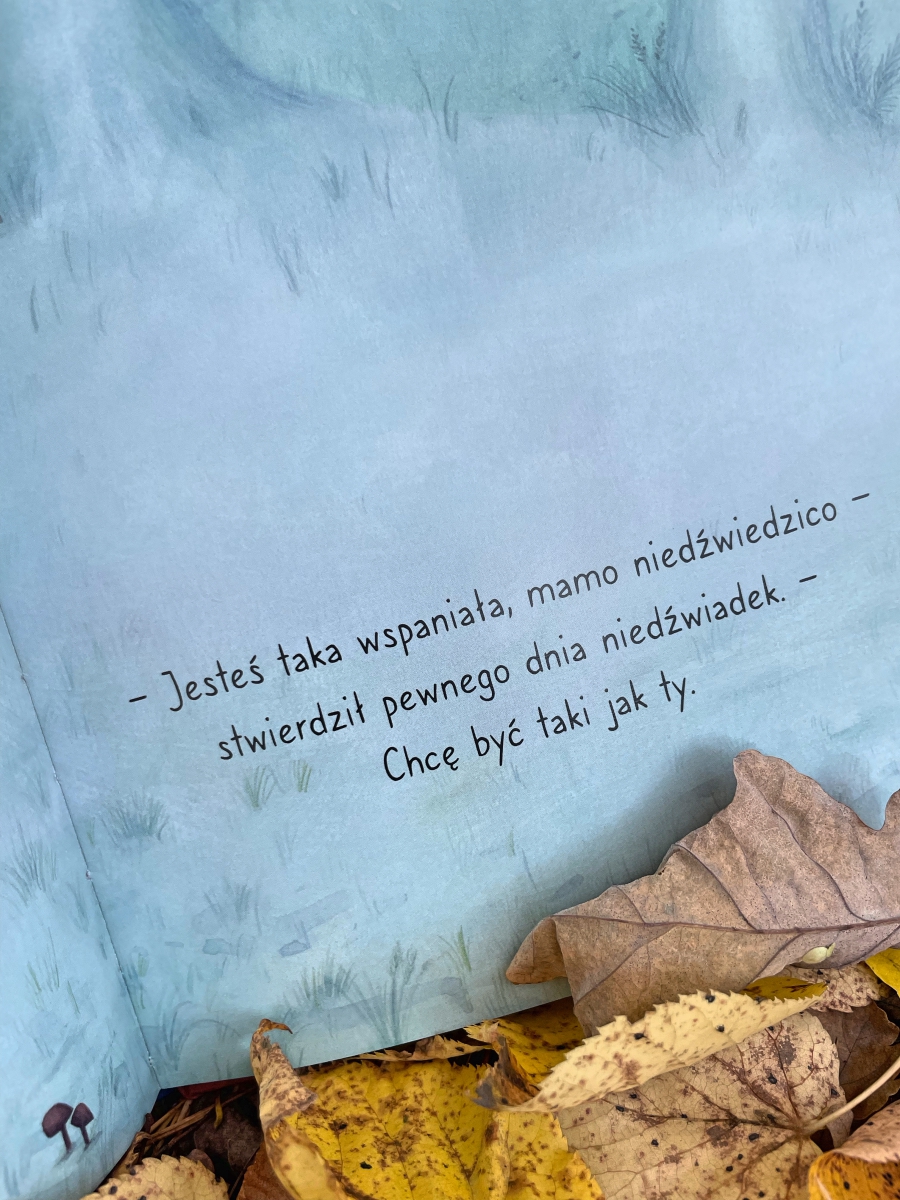 – Jesteś taka wspaniała, mamo niedźwiedzico –
stwierdził pewnego dnia niedźwiadek. –
Chcę być taki jak ty.